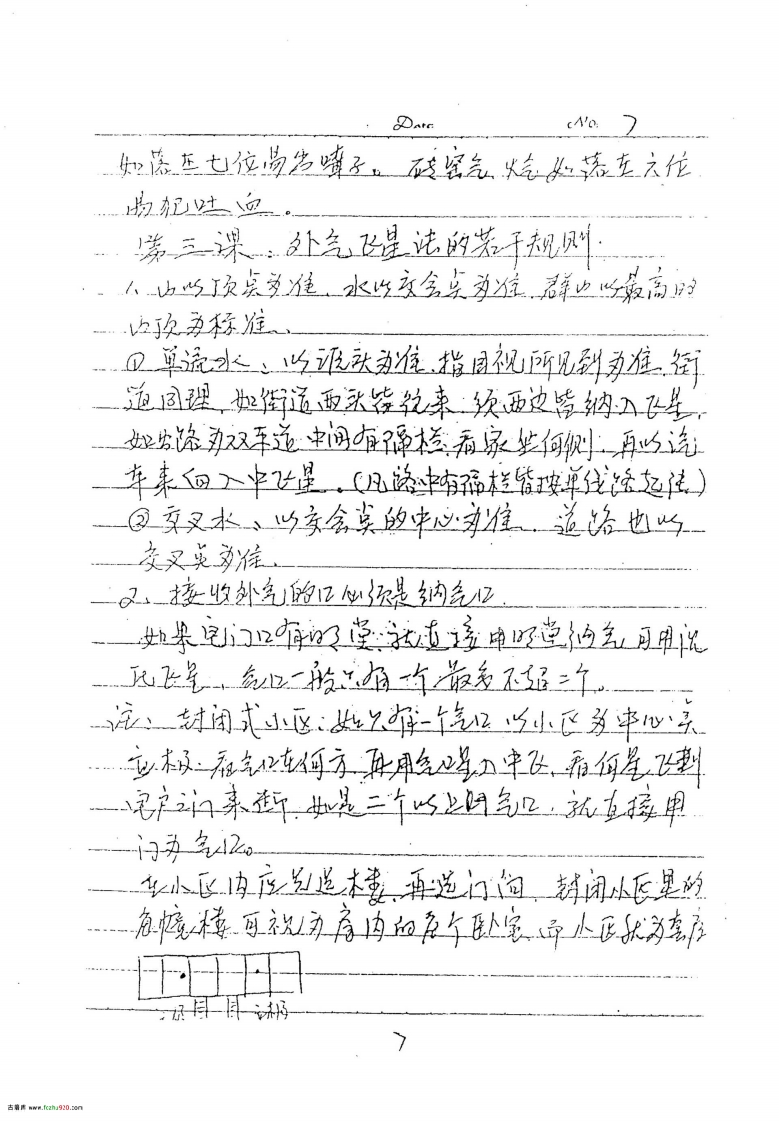 Date No. 7
如落在七位易伤嗓子。砖窑气烟如落在六位
易犯吐血。
第三课：外气飞星法的若干规则.
1、山以顶点为准、水以交会点为准、群山以最高的
山顶为标准、
①单流水、以源头为准、指目视所见到为准、街
道同理、如街道两头皆往来、须两边皆纳入飞星、
如公路为双车道中间有隔栏、看家坐何侧、再以汽
车来向入中飞星。(凡路中有隔栏皆按单线路起法)
②交叉水、以交会点的中心为准、道路也以
交叉点为准、
2、接收外气的口必须是纳气口
如果宅门口有明堂、就直接用明堂纳气可用
飞星、气口一般只有一个最多不超二个。
注、封闭式小区：如只有一个气口、以小区为中心点
立极、看气口在何方、再用气口星入中飞、看何星飞到
宅户之门来断、如是二个以上的气口、就直接用
门为气口。
在小区内应先选木楼、再选门间、封闭小区里的
每幢楼可视为房内的各个卧室、而小区就为套房
7
古籍库 www.fczhu920.com